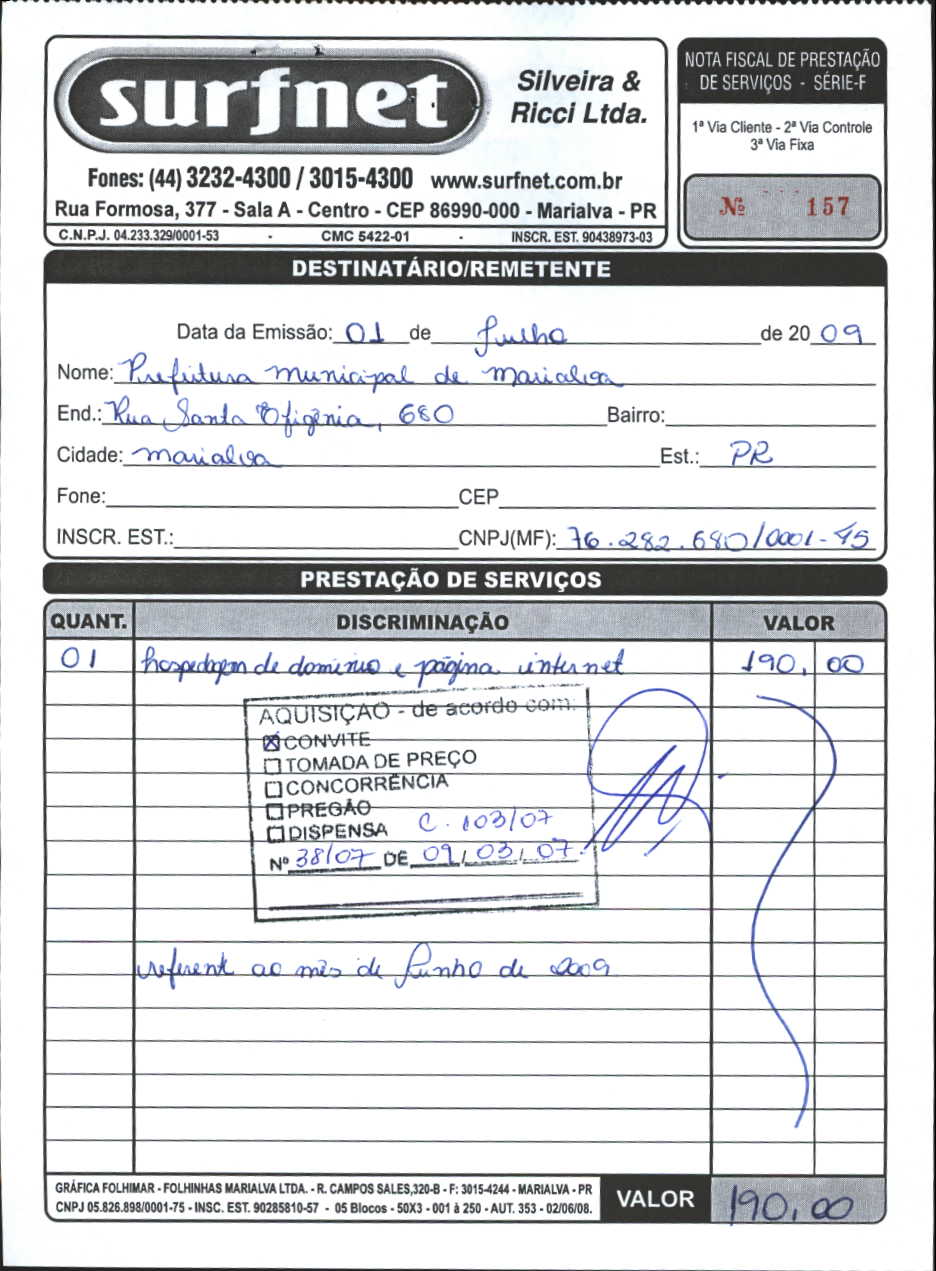 surfnet
Silveira &
Ricci Ltda.
Fones: (44) 3232-4300 / 3015-4300 www.surfnet.com.br
Rua Formosa, 377 - Sala A - Centro - CEP 86990-000 - Marialva - PR
C.N.P.J. 04.233.329/0001-53 - CMC 5422-01 - INSCR. EST. 90438973-03
NOTA FISCAL DE PRESTAÇÃO
DE SERVIÇOS - SÉRIE-F
1ª Via Cliente - 2ª Via Controle
3ª Via Fixa
Nº 157
DESTINATÁRIO/REMETENTE
Data da Emissão: 01 de Julho de 20 09
Nome: Prefeitura municipal de marialva
End.: Rua Santa Efigênia, 680 Bairro:
Cidade: marialva Est.: PR
Fone: CEP
INSCR. EST.: CNPJ(MF): 76.282.680/0001-45
PRESTAÇÃO DE SERVIÇOS
QUANT. DISCRIMINAÇÃO VALOR
01 hospedagem de dominio e página internet 190,00
AQUISIÇAO - de acordo com:
☒ CONVITE
☐ TOMADA DE PREÇO
☐ CONCORRÊNCIA
☐ PREGÃO
☐ DISPENSA C. 103/07
Nº 38/07 DE 09/03/07.
referent ao mês de Junho de 2009
GRÁFICA FOLHIMAR - FOLHINHAS MARIALVA LTDA. - R. CAMPOS SALES,320-B - F: 3015-4244 - MARIALVA - PR
CNPJ 05.826.898/0001-75 - INSC. EST. 90285810-57 - 05 Blocos - 50X3 - 001 à 250 - AUT. 353 - 02/06/08.
VALOR 190,00